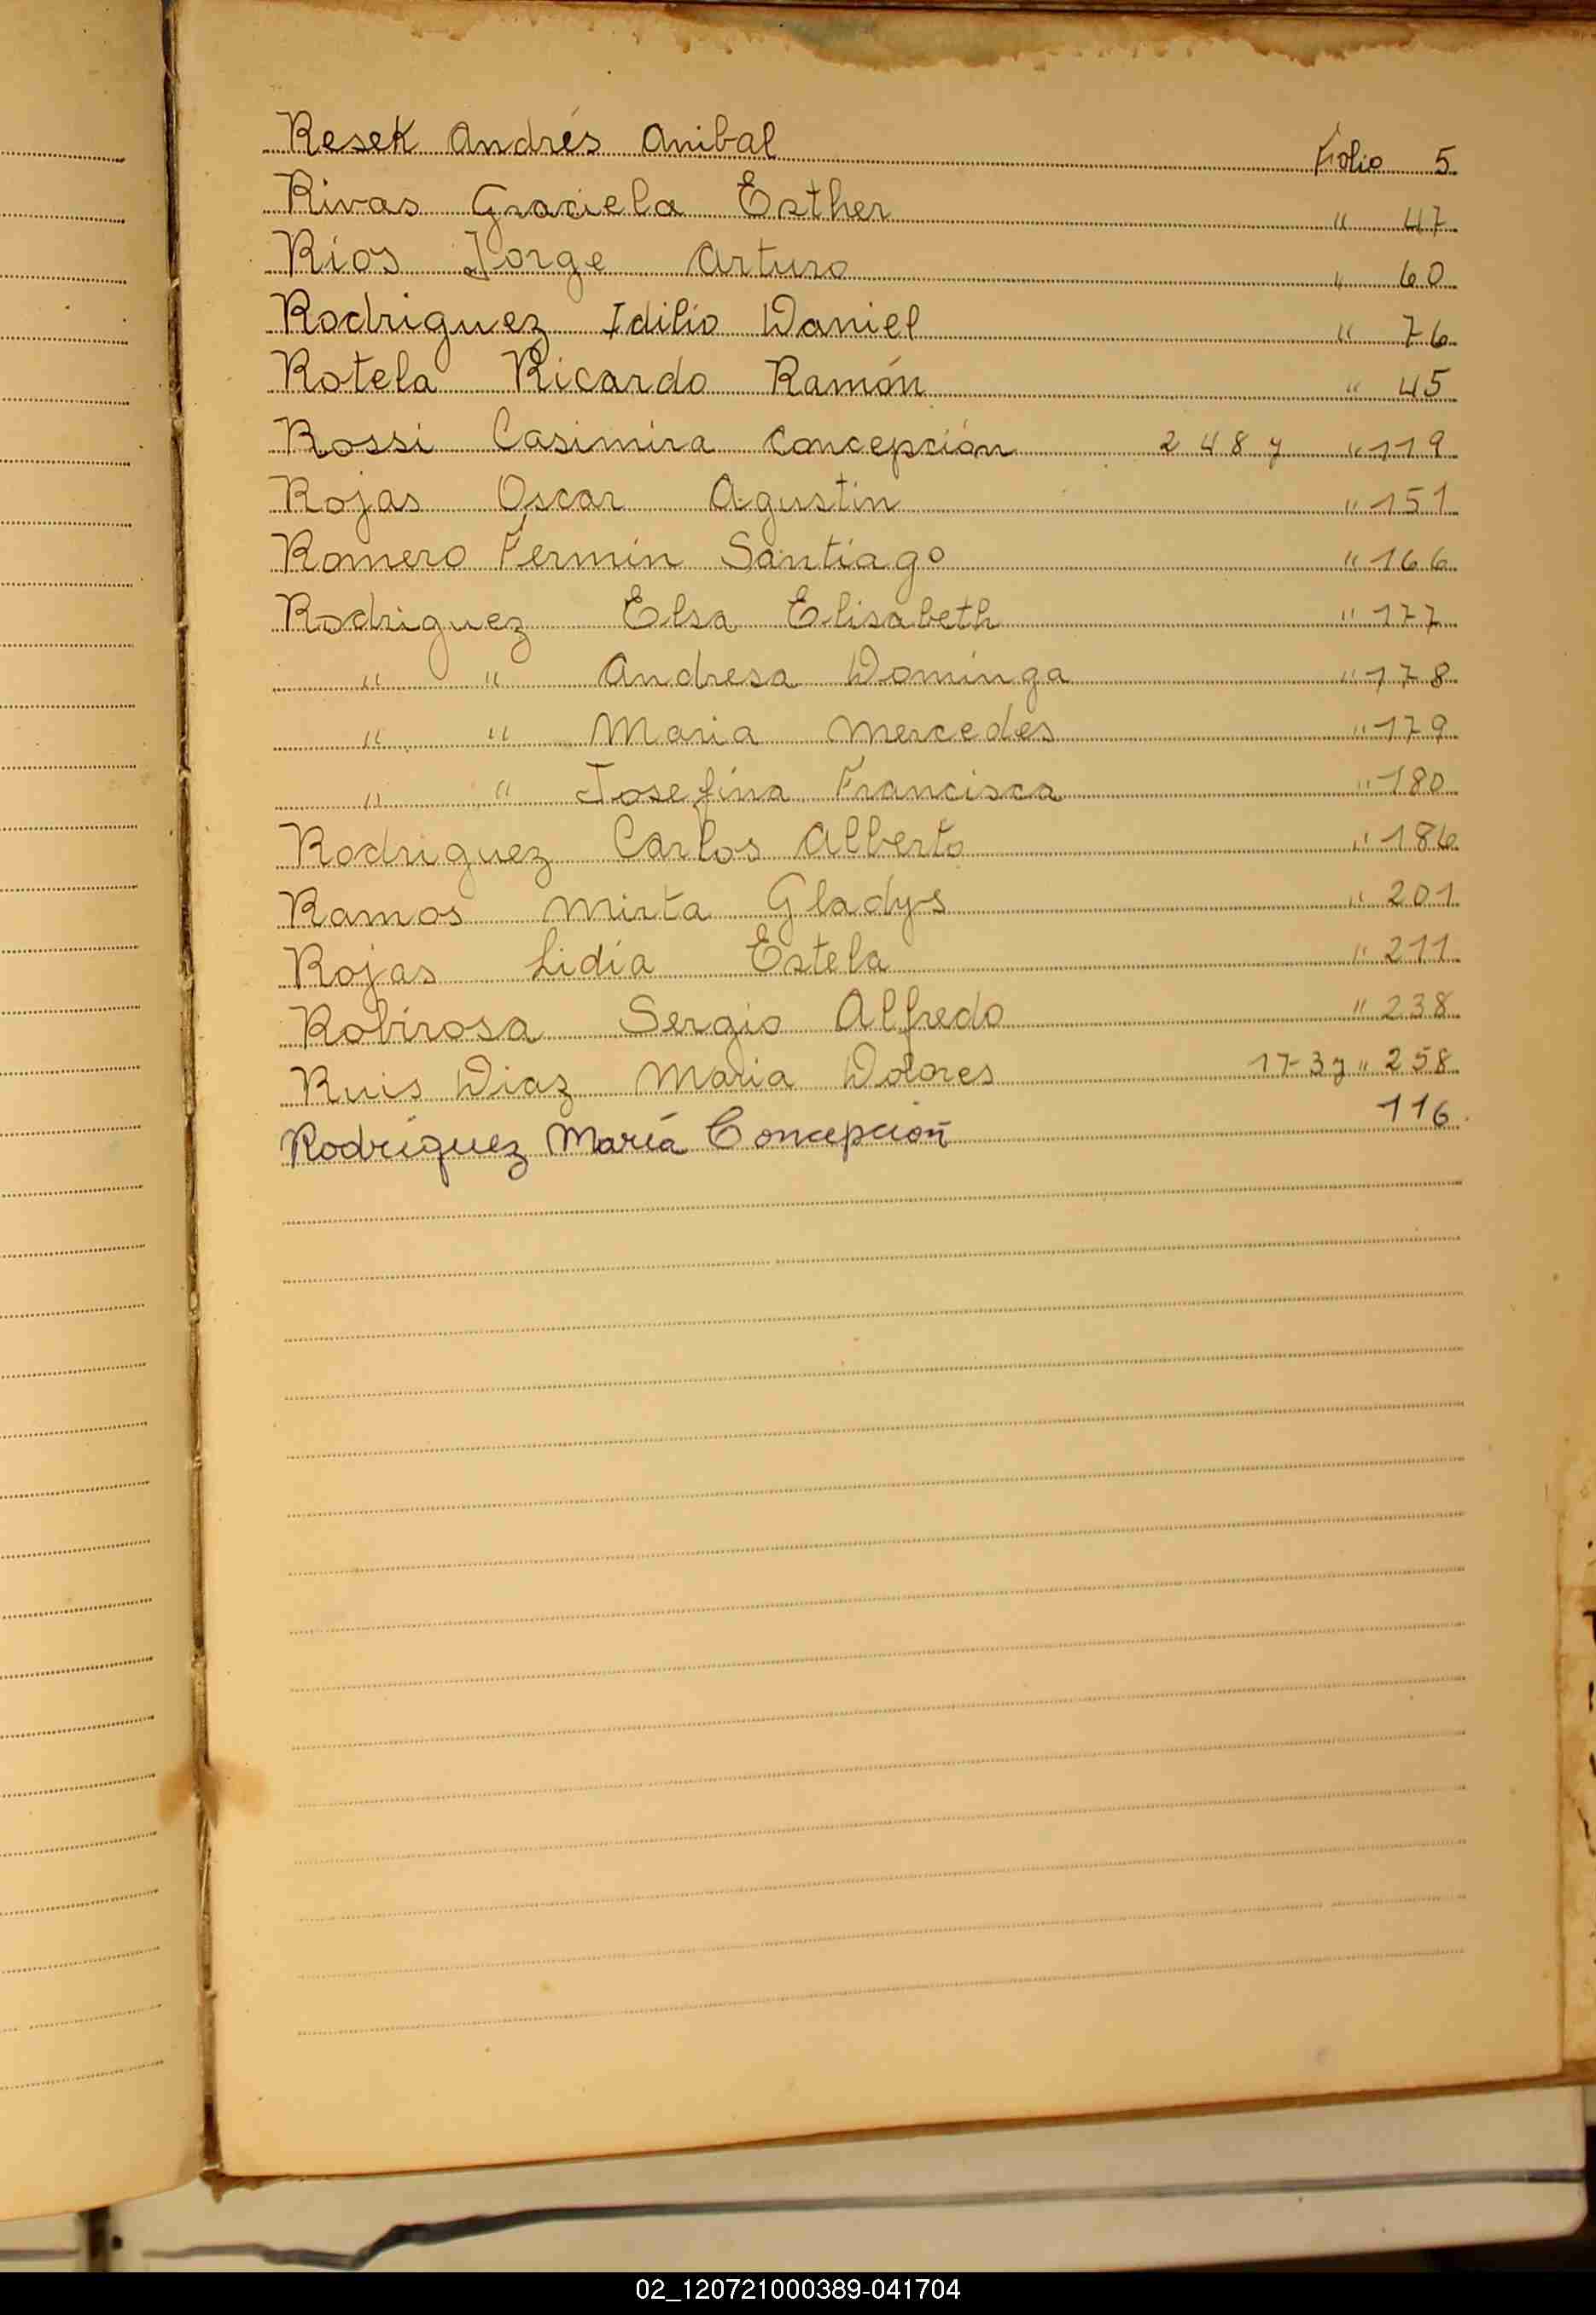 Resek Andrés Anibal Folio 5
Rivas Graciela Esther " 47
Ríos Jorge Arturo " 60
Rodriguez Idilio Daniel " 76
Rotela Ricardo Ramón " 45
Rossi Casimira Concepción 248 y " 119
Rojas Oscar Agustin " 151
Romero Fermín Santiago " 166
Rodriguez Elsa Elisabeth " 177
" " Andresa Dominga " 178
" " Maria Mercedes " 179
" " Josefina Francisca " 180
Rodriguez Carlos Alberto " 186
Ramos Mirta Gladys " 201
Rojas Lidia Estela " 211
Robirosa Sergio Alfredo " 238
Ruis Diaz Maria Dolores 173 y " 258
Rodríguez María Concepción 116
02_120721000389-041704